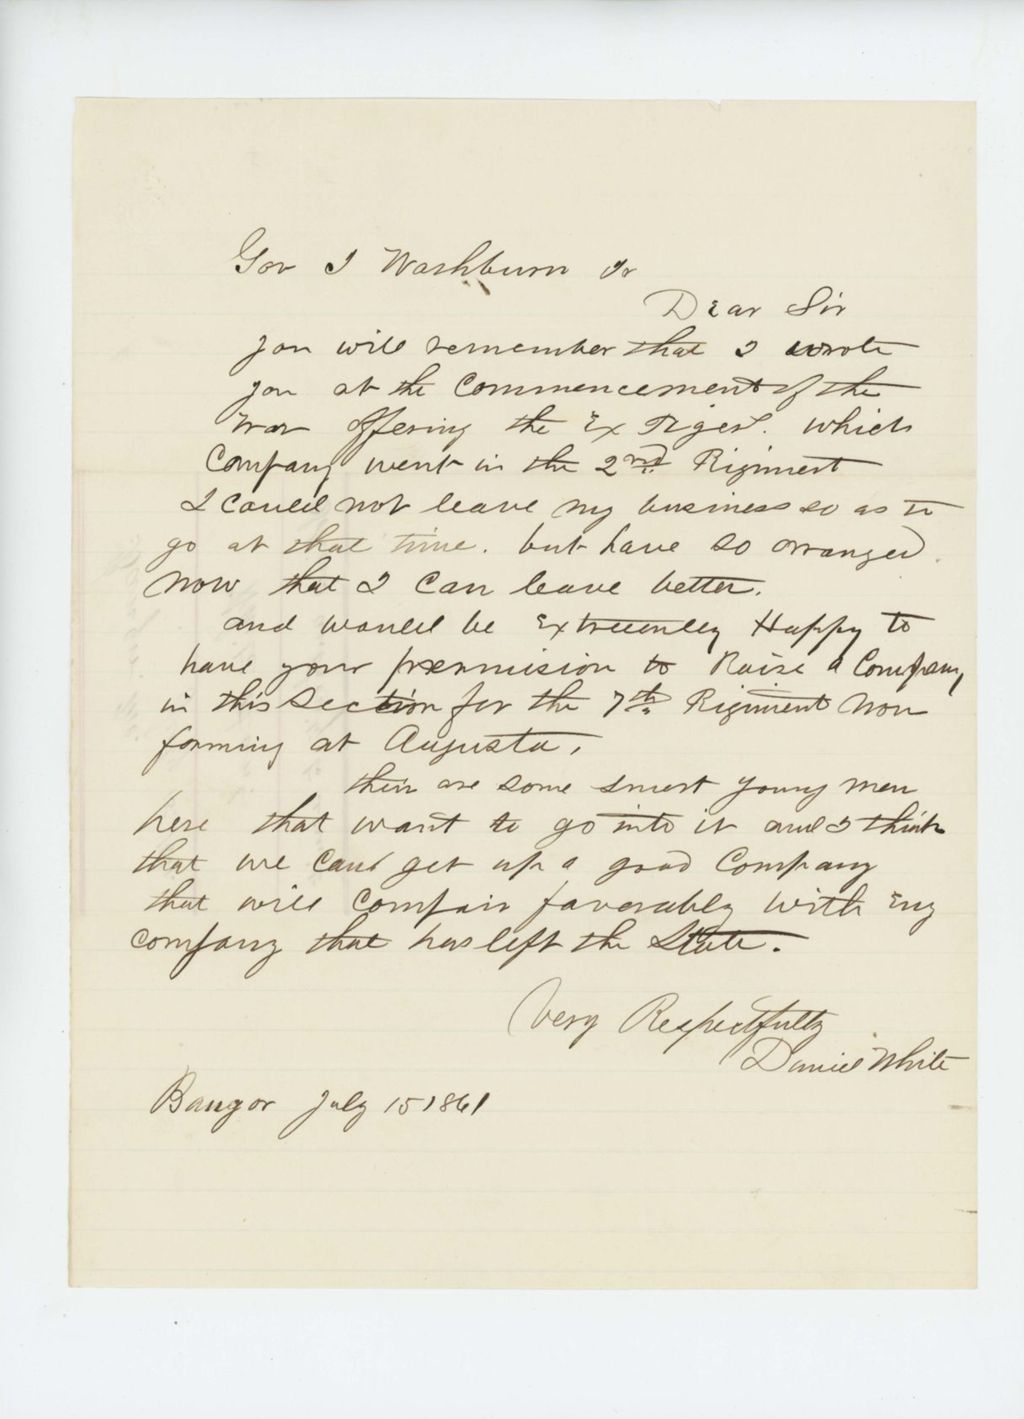 Gov I Washburn Jr
Dear Sir
you will remember that I wrote
you at the Commencement of the
War offering the Ex Tigers. which
Company went in the 2nd Rigiment
I could not leave my business so as to
go at that time. but have so arranged
now that I can leave better.
and would be Extreemley Happy to
have your permision to Raise a Company
in this section for the 7th Rigiment Now
forming at Augusta.
their are some smart young men
here that want to go into it and I think
that we can get up a good Company
that will Compair favorably with Eny
company that has left the State.
Very Respectfully
Daniel White
Bangor July 15 1861